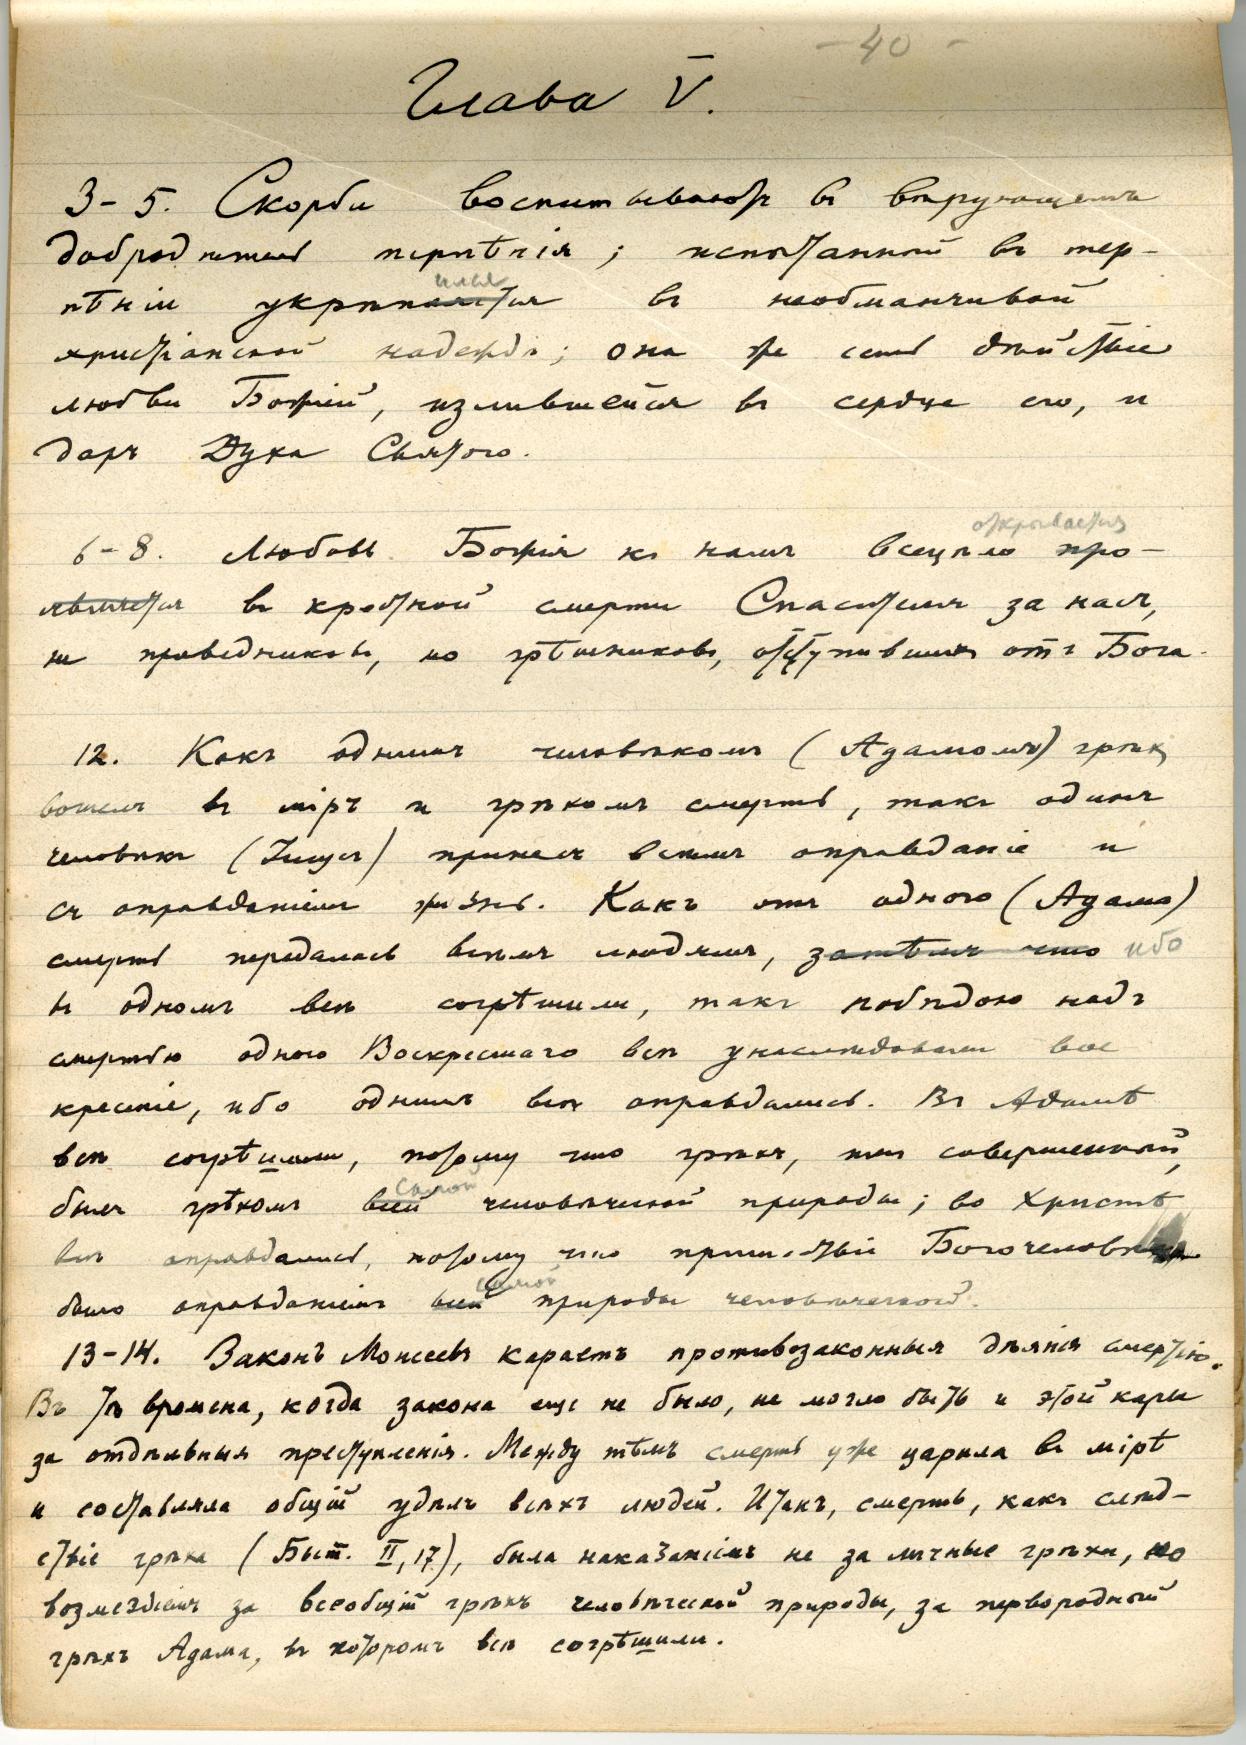 - 40 -
Глава V.
3-5. Скорби воспитываютъ въ вѣрующемъ
добродѣтель терпѣнія; испытанный въ тер-
пѣніи укрѣпляется въ необманчивой
христіанской надеждѣ; она же есть дѣйствіе
любви Божіей, излившейся въ сердце его, и
даръ Духа Святого.
открывается
6-8. Любовь Божія къ намъ всецѣло про-
является въ крестной смерти Спасителя за насъ,
не праведниковъ, но грѣшниковъ, отступившихъ отъ Бога.
12. Какъ однимъ человѣкомъ (Адамомъ) грѣхъ
вошелъ въ міръ и грѣхомъ смерть, такъ одинъ
человѣкъ (Іисусъ) принесъ всѣмъ оправданіе и
съ оправданіемъ жизнь. Какъ отъ одного (Адама)
смерть передалась всѣмъ людямъ, затѣмъ что ибо
въ одномъ всѣ согрѣшили, такъ побѣдою надъ
смертью одного Воскресшаго всѣ унаслѣдовали вос
кресеніе, ибо однимъ всѣ оправдались. Въ Адамѣ
всѣ согрѣшили, потому что грѣхъ, имъ совершенный,
самой
былъ грѣхомъ всей человѣческой природы; во Христѣ
всѣ оправдались, потому что пришествіе Богочеловѣка
самой
было оправданіемъ всей природы человѣческой.
13-14. Законъ Моисеевъ караетъ противозаконныя дѣянія смертію.
Въ тѣ времена, когда закона еще не было, не могло быть и этой кары
за отдѣльныя преступленія. Между тѣмъ смерть уже царила въ мірѣ
и составляла общій удѣлъ всѣхъ людей. Итакъ, смерть, какъ слѣд-
ствіе грѣха (Быт. II, 17), была наказаніемъ не за личные грѣхи, но
возмездіемъ за всеобщій грѣхъ человѣческой природы, за первородный
грѣхъ Адама, въ которомъ всѣ согрѣшили.